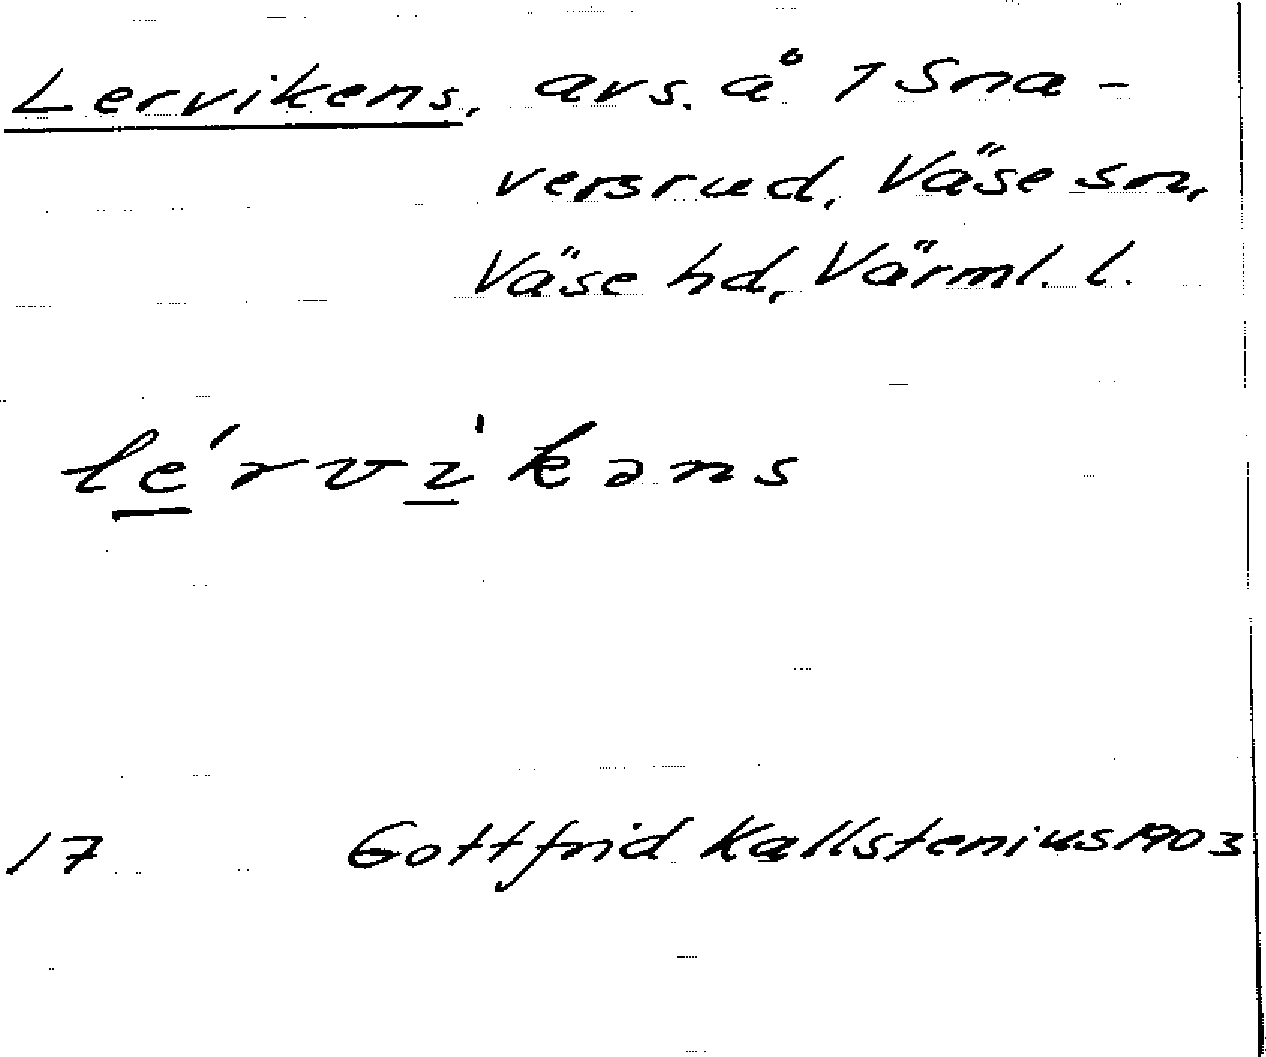 Lervikens, avs. å 1 Sna-
versrud, Väse sn,
Väse hd, Värml. l.
lérvìkəns
17 Gottfrid Kallstenius 1903